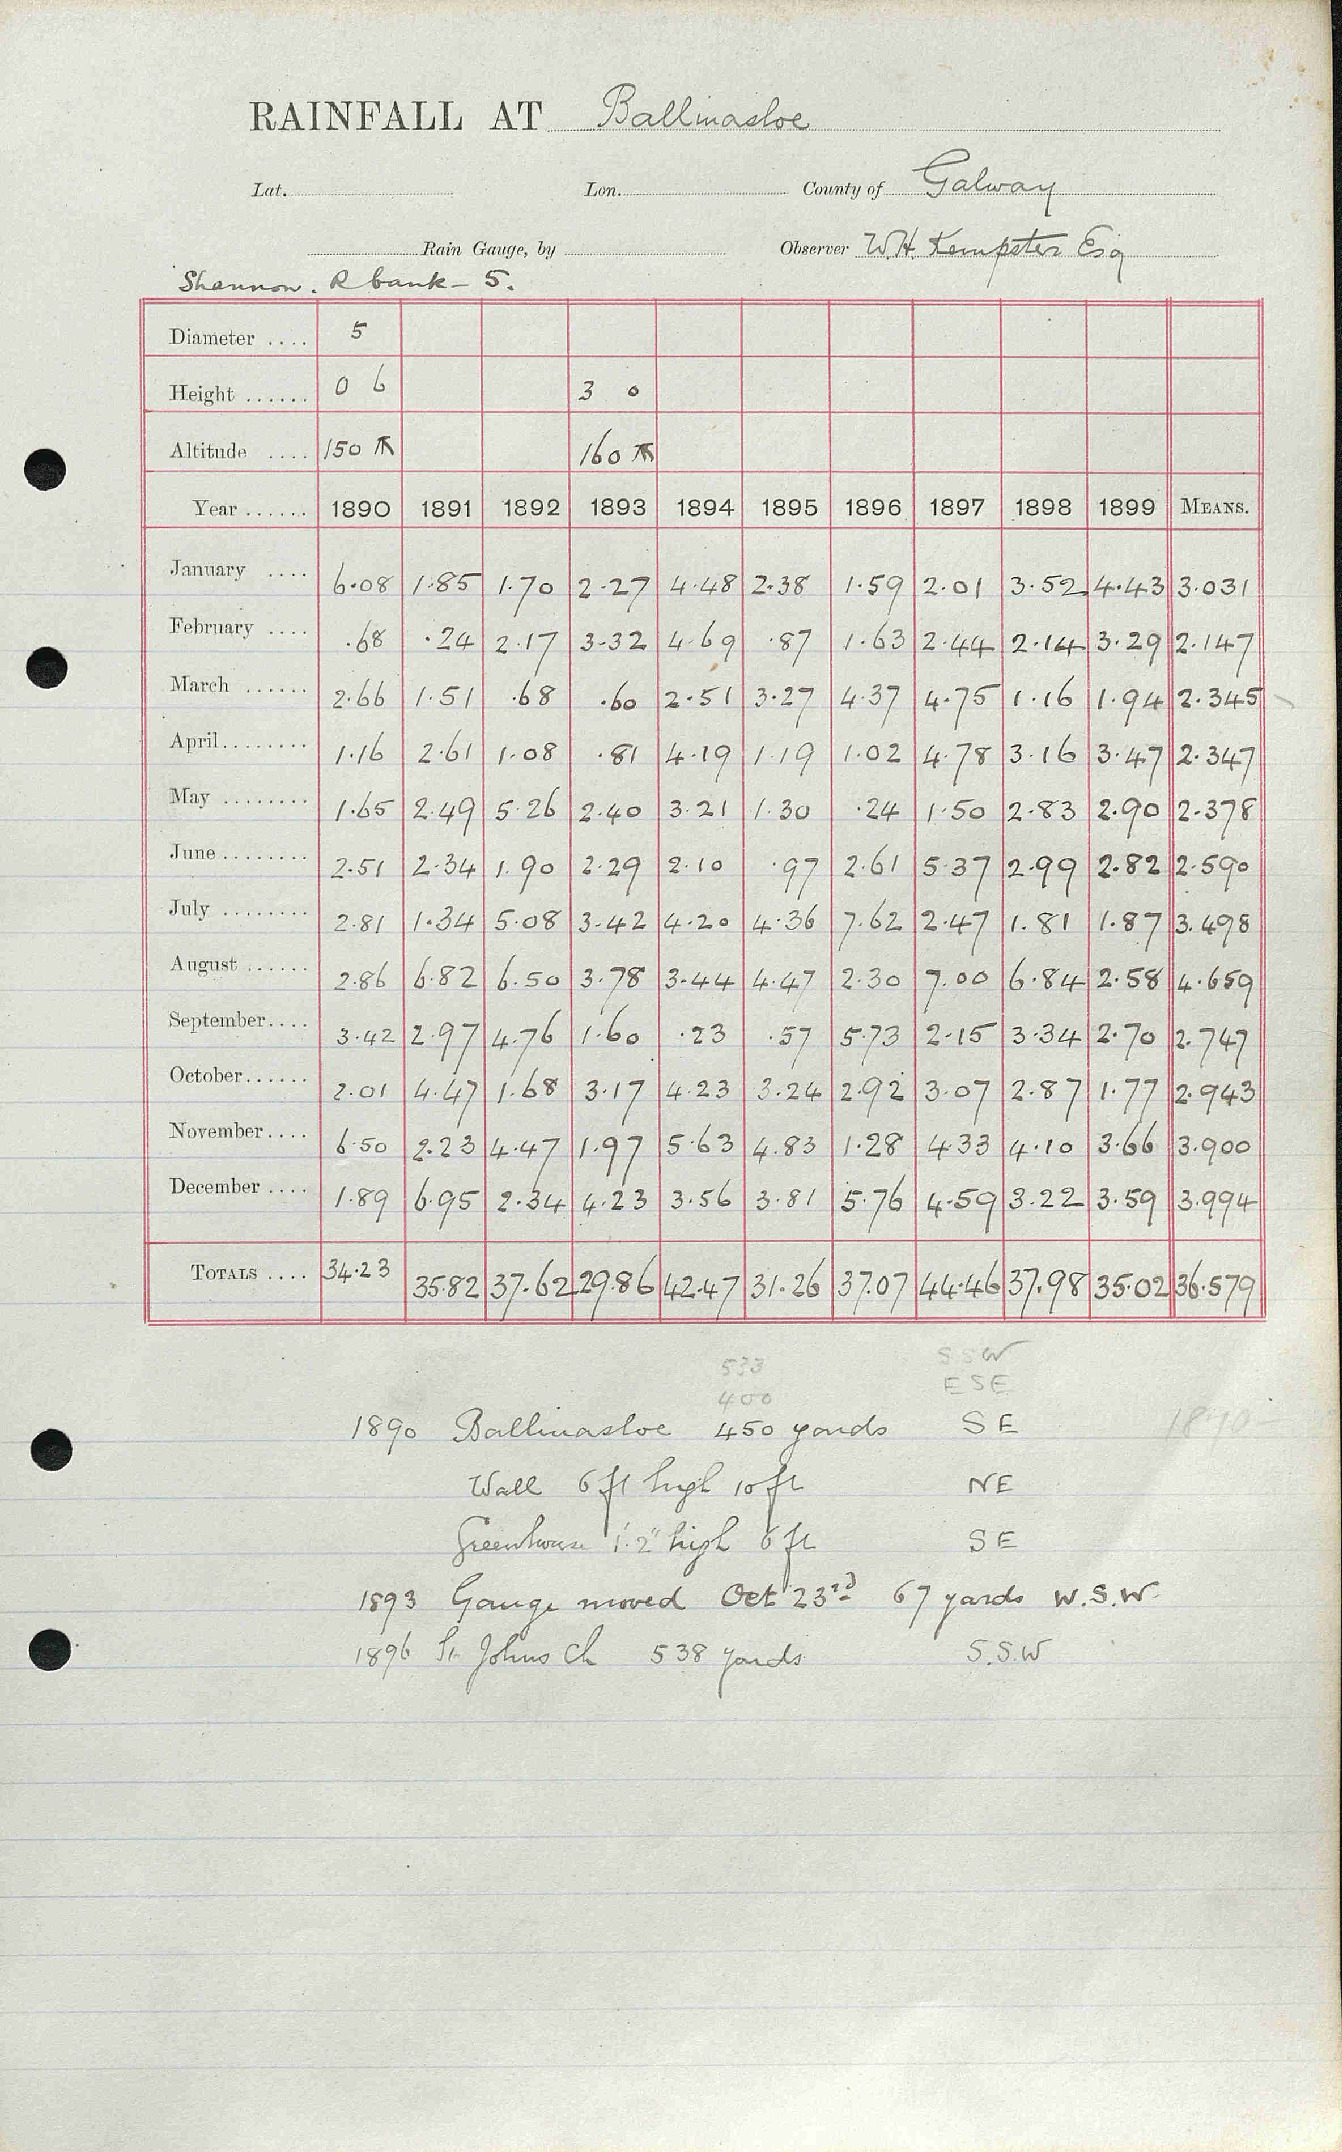 RAINFALL AT Ballinasloe
Lat. Lon. County of Galway
Rain Gauge, by Observer W.H. Kempster Esq
Shannon. R bank - 5.
Diameter .... 5
Height ...... 0 6 3 0
Altitude .... 150 160
Year ...... 1890 1891 1892 1893 1894 1895 1896 1897 1898 1899 MEANS.
January .... 6.08 1.85 1.70 2.27 4.48 2.38 1.59 2.01 3.52 4.43 3.031
February .... .68 .24 2.17 3.32 4.69 .87 1.63 2.44 2.14 3.29 2.147
March ...... 2.66 1.51 .68 .60 2.51 3.27 4.37 4.75 1.16 1.94 2.345
April........ 1.16 2.61 1.08 .81 4.19 1.19 1.02 4.78 3.16 3.47 2.347
May ........ 1.65 2.49 5.26 2.40 3.21 1.30 .24 1.50 2.83 2.90 2.378
June........ 2.51 2.34 1.90 2.29 2.10 .97 2.61 5.37 2.99 2.82 2.590
July ........ 2.81 1.34 5.08 3.42 4.20 4.36 7.62 2.47 1.81 1.87 3.498
August ...... 2.86 6.82 6.50 3.78 3.44 4.47 2.30 7.00 6.84 2.58 4.659
September.... 3.42 2.97 4.76 1.60 .23 .57 5.73 2.15 3.34 2.70 2.747
October...... 2.01 4.47 1.68 3.17 4.23 3.24 2.92 3.07 2.87 1.77 2.943
November.... 6.50 2.23 4.47 1.97 5.63 4.83 1.28 4.33 4.10 3.66 3.900
December .... 1.89 6.95 2.34 4.23 3.56 3.81 5.76 4.59 3.22 3.59 3.994
TOTALS .... 34.23 35.82 37.62 29.86 42.47 31.26 37.07 44.46 37.98 35.02 36.579
533 SSW
400 ESE
1890 Ballinasloe 450 yards SE 1890
Wall 6 ft high 10 ft NE
Greenhouse 1'.2" high 6 ft SE
1893 Gauge moved Oct 23rd 67 yards W.S.W.
1896 St Johns Ch 538 yards S.S.W